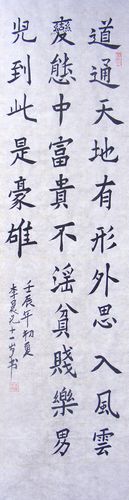 道通天地有形外思入風雲
變態中富貴不淫貧賤樂男
兒到此是豪雄
壬辰年初夏
李泉元十一岁书